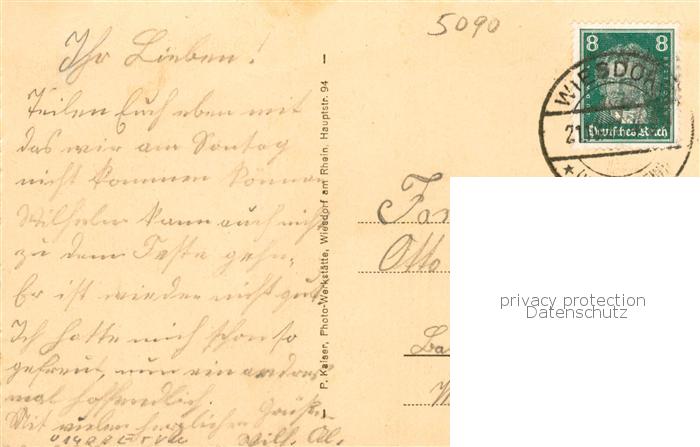 5090
Ihr Lieben!
Teilen Euch eben mit
das wir am Sontag
nicht kommen können
Wilhelm kann auch nicht
zu dem Feste gehn,
Er ist wieder nicht gut
Ich hatte mich schon so
gefreut, nun ein andres
mal hoffendlich.
Mit vielen herzlichen Grüßen
P. Kaiser, Photo-Werkstätte, Wiesdorf am Rhein. Hauptstr. 94
8 8
Deutsches Reich
WIESDOR
21.
Otto
privacy protection
Datenschutz